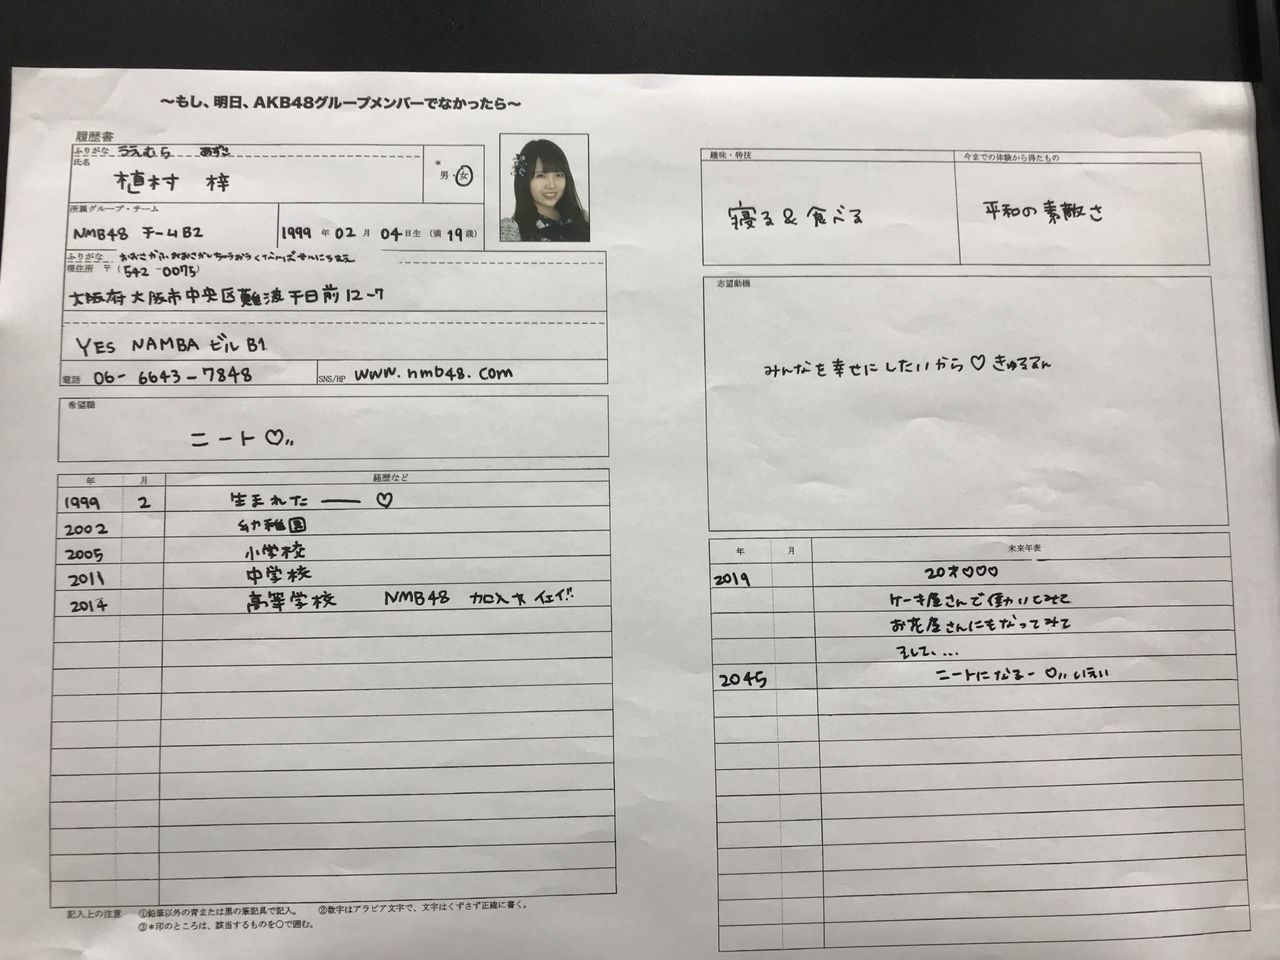 ～もし、明日、AKB48グループメンバーでなかったら～
履歴書
ふりがな うえむら あずさ
氏名
植村 梓
＊
男・女
所属グループ・チーム
NMB48 チームBⅡ
1999 年 02 月 04 日生 (満 19 歳)
ふりがな おおさかふおおさかしちゅうおうくなんばせんにちまえ
現住所 〒(542-0075)
大阪府大阪市中央区難波千日前12-7
YES NAMBA ビル B1
電話 06-6643-7848
SNS/HP www.nmb48.com
希望職
ニート♡〃
年 月 経歴など
1999 2 生まれたー♡
2002 幼稚園
2005 小学校
2011 中学校
2014 高等学校 NMB48 加入ヤイェイ!!
記入上の注意 ①鉛筆以外の青または黒の筆記具で記入。 ②数字はアラビア文字で、文字はくずさず正確に書く。
③＊印のところは、該当するものを○で囲む。
趣味・特技
寝る & 食べる
今までの体験から得たもの
平和の素敵さ
志望動機
みんなを幸せにしたいから♡きゅるるん
年 月 未来年表
2019 20才♡♡♡
ケーキ屋さんで働いてみて
お花屋さんにもなってみて
そして、...
2045 ニートになるー♡〃いえい